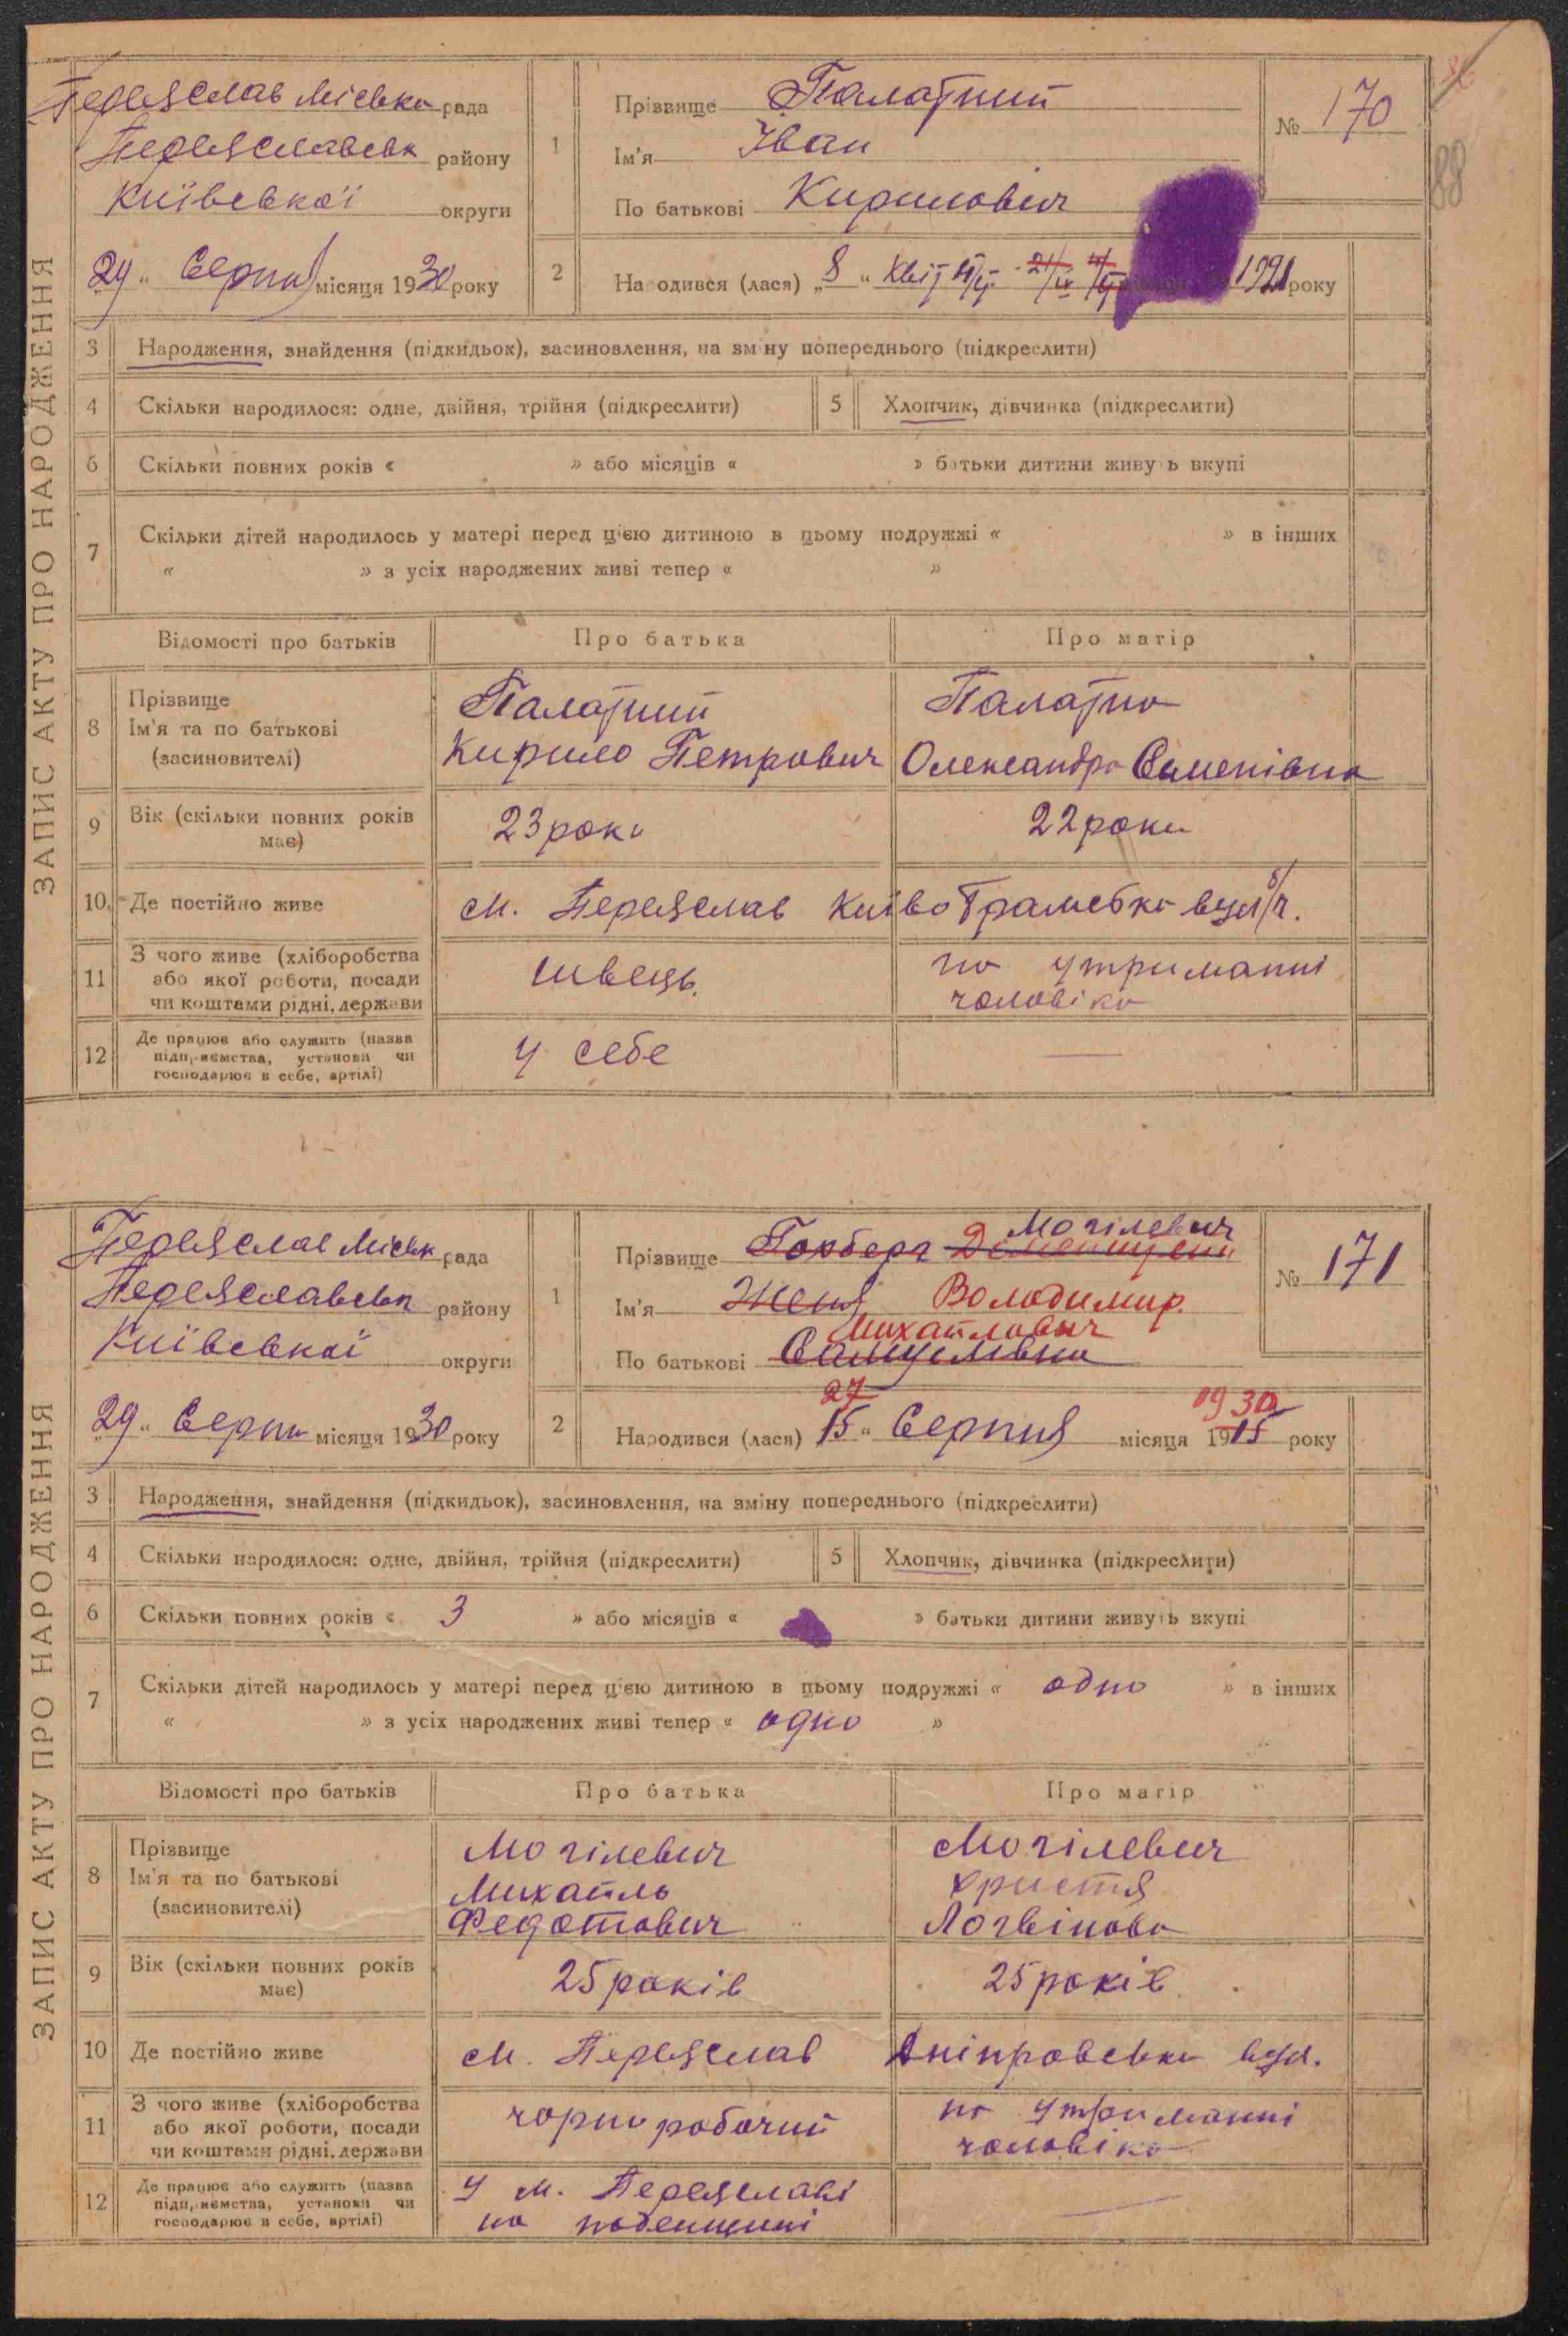 88
ЗАПИС АКТУ ПРО НАРОДЖЕННЯ
Переяслав Міська рада
Переяславськ району
Київської округи
„29“ Серпня місяця 1930 року
1 Прізвище Палатний
Ім'я Іван
По батькові Кирилович
№ 170
2 Народився (лася) „8“ Квіт 1921 року
3 Народження, знайдення (підкидьок), засиновлення, на зміну попереднього (підкреслити)
4 Скільки народилося: одне, двійня, трійня (підкреслити) 5 Хлопчик, дівчинка (підкреслити)
6 Скільки повних років « » або місяців « » батьки дитини живуть вкупі
7 Скільки дітей народилось у матері перед цією дитиною в цьому подружжі « » в інших
« » з усіх народжених живі тепер « »
Відомості про батьків Про батька Про матір
8 Прізвище Ім'я та по батькові (засиновителі)
Палатний Палатна
Кирило Петрович Олександра Семенівна
9 Вік (скільки повних років має) 23 роки 22 роки
10 Де постійно живе м. Переяслав Києво вул
11 З чого живе (хліборобства або якої роботи, посади чи коштами рідні, держави
швець. на утриманні
чоловіка
12 Де працює або служить (назва підприємства, установи чи господарює в себе, артілі)
у себе —
ЗАПИС АКТУ ПРО НАРОДЖЕННЯ
Переяслав Міськ рада
Переяславськ району
Київської округи
„29“ Серпня місяця 1930 року
Могілевич
1 Прізвище
Ім'я Женя Володимир.
Михайлович
По батькові Самуилівна
№ 171
27 1930
2 Народився (лася) „15“ Серпня місяця 1915 року
3 Народження, знайдення (підкидьок), засиновлення, на зміну попереднього (підкреслити)
4 Скільки народилося: одне, двійня, трійня (підкреслити) 5 Хлопчик, дівчинка (підкреслити)
6 Скільки повних років « 3 » або місяців « » батьки дитини живуть вкупі
7 Скільки дітей народилось у матері перед цією дитиною в цьому подружжі « одно » в інших
« » з усіх народжених живі тепер « одно »
Відомості про батьків Про батька Про матір
8 Прізвище Ім'я та по батькові (засиновителі)
Могілевич Могілевич
Михайль Христя
Федотович Логвінова
9 Вік (скільки повних років має) 25 років 25 років
10 Де постійно живе м. Переяслав Дніпровська вул.
11 З чого живе (хліборобства або якої роботи, посади чи коштами рідні, держави
чорноробочий на утриманні
чоловіка
12 Де працює або служить (назва підприємства, установи чи господарює в себе, артілі)
У м. Переяславі —
на поденщині